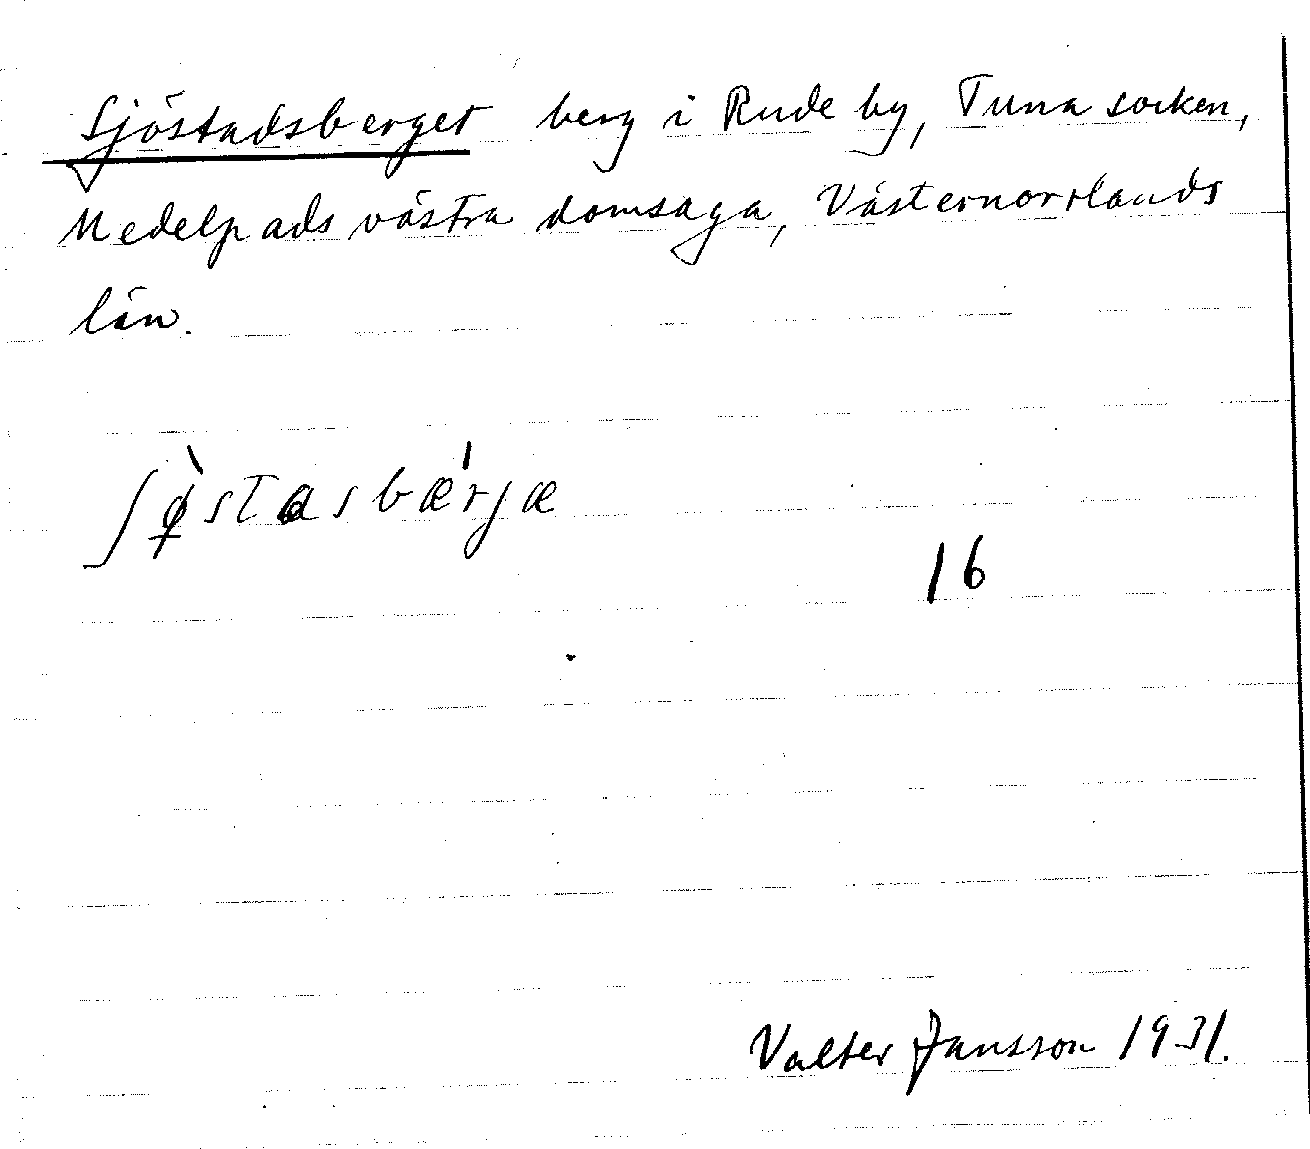 Sjöstadsberget berg i Rude by, Tuna socken,
Medelpads västra domsaga, Västernorrlands
län.
ʃø̀stasbæ'rjæ
16
Valter Jansson 1931.